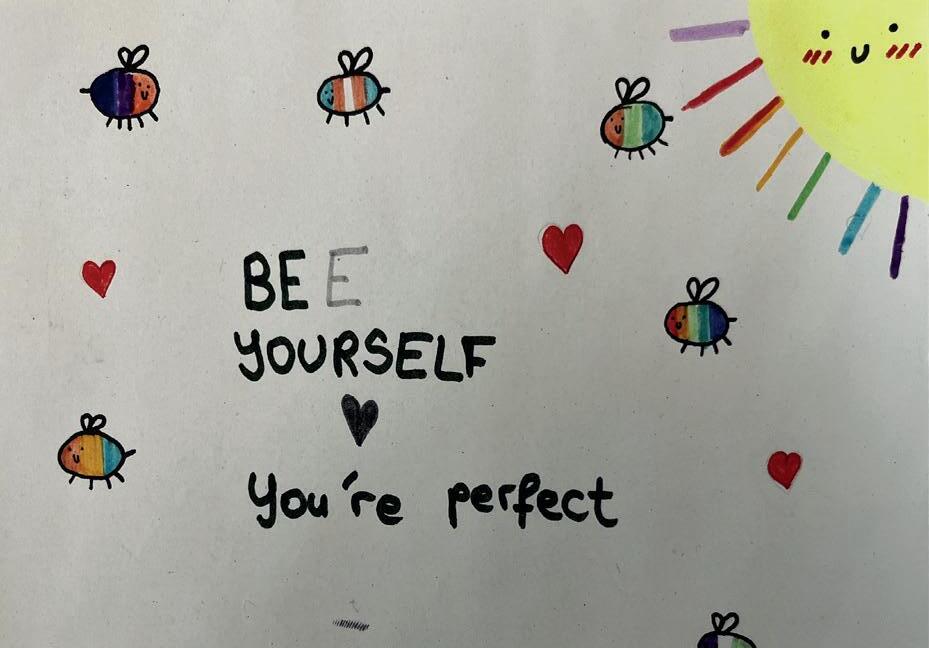 BEE
YOURSELF
You're perfect